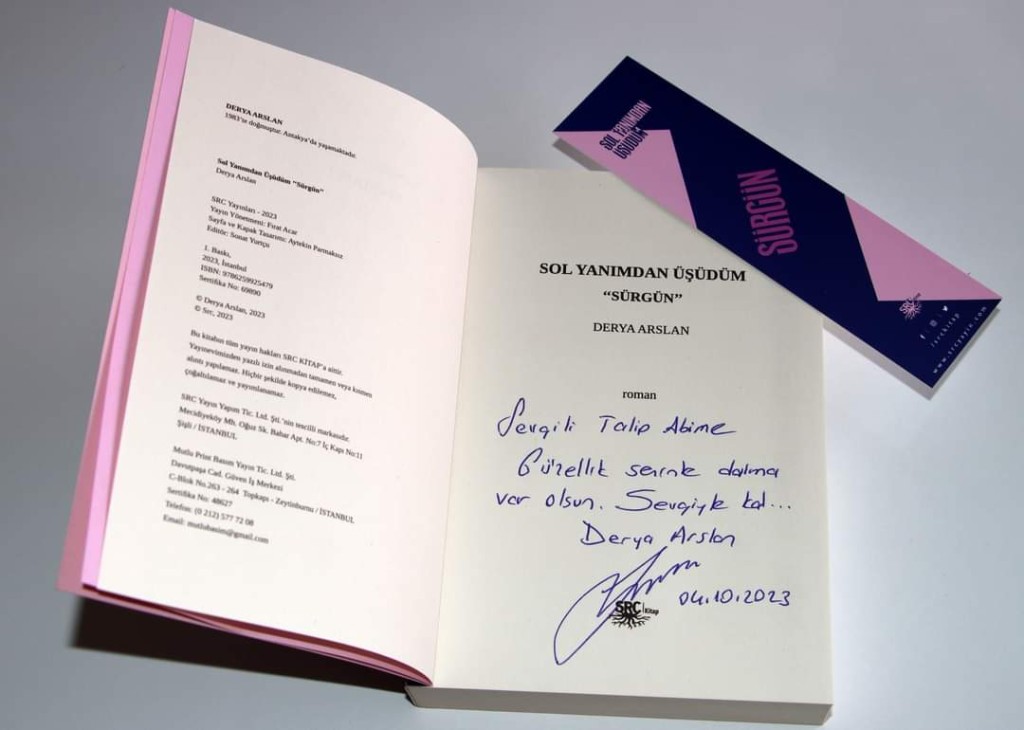 DERYA ARSLAN
1983'te doğmuştur. Antakya'da yaşamaktadır.
Sol Yanımdan Üşüdüm "Sürgün"
Derya Arslan
SRC Yayınları - 2023
Yayın Yönetmeni: Fırat Acar
Sayfa ve Kapak Tasarımı: Aytekin Parmaksız
Editör: Sonat Yurtçu
1. Baskı,
2023, İstanbul
ISBN: 9786259925479
Sertifika No: 69890
© Derya Arslan, 2023
© Src, 2023
Bu kitabın tüm yayın hakları SRC KİTAP'a aittir.
Yayınevimizden yazılı izin alınmadan tamamen veya kısmen
alıntı yapılamaz. Hiçbir şekilde kopya edilemez,
çoğaltılamaz ve yayımlanamaz.
SRC Yayın Yapım Tic. Ltd. Şti.'nin tescilli markasıdır.
Mecidiyeköy Mh. Oğuz Sk. Bahar Apt. No:7 İç Kapı No:11
Şişli / İSTANBUL
Mutlu Print Basım Yayın Tic. Ltd. Şti.
Davutpaşa Cad. Güven İş Merkezi
C-Blok No.263 - 264 Topkapı - Zeytinburnu / İSTANBUL
Sertifika No: 48627
Telefon: (0 212) 577 72 08
Email: mutlubasim@gmail.com
SOL YANIMDAN ÜŞÜDÜM
"SÜRGÜN"
DERYA ARSLAN
roman
Sevgili Talip Abime
Güzellik seninle daima
var olsun. Sevgiyle kal...
Derya Arslan
04.10.2023
SRC Kitap
SOL YANIMDAN
ÜŞÜDÜM
SÜRGÜN
SRC Kitap
/srckitap
www.srcyayin.com